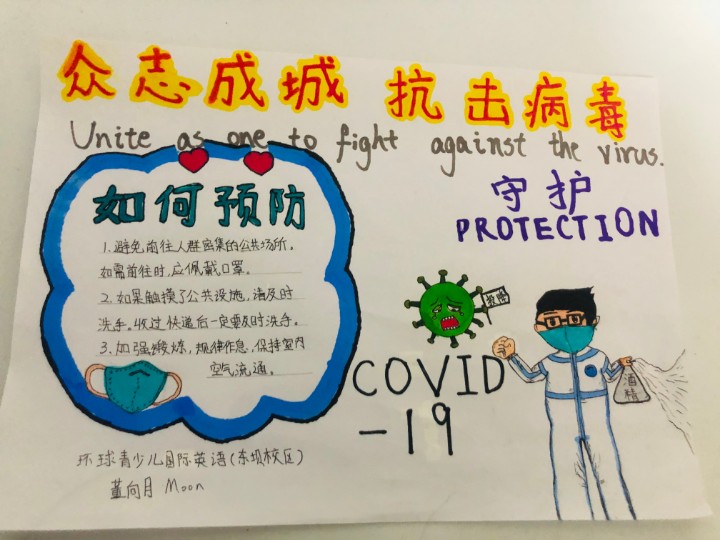 众志成城 抗击病毒
Unite as one to fight against the virus.
守护
PROTECTION
如何预防
1.避免前往人群密集的公共场所。
如需前往时,应佩戴口罩。
2.如果触摸了公共设施,请及时
洗手。收过快递后一定要及时洗手。
3.加强锻炼,规律作息,保持室内
空气流通。
COVID
-19
酒精
环球青少儿国际英语(东坝校区)
董向月 Moon